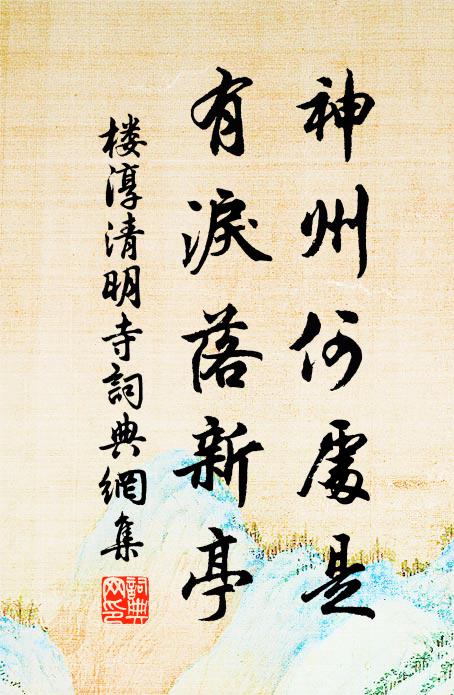 神州何處是
有淚落新亭
楼淳清明寺詞典網集
詞典網印